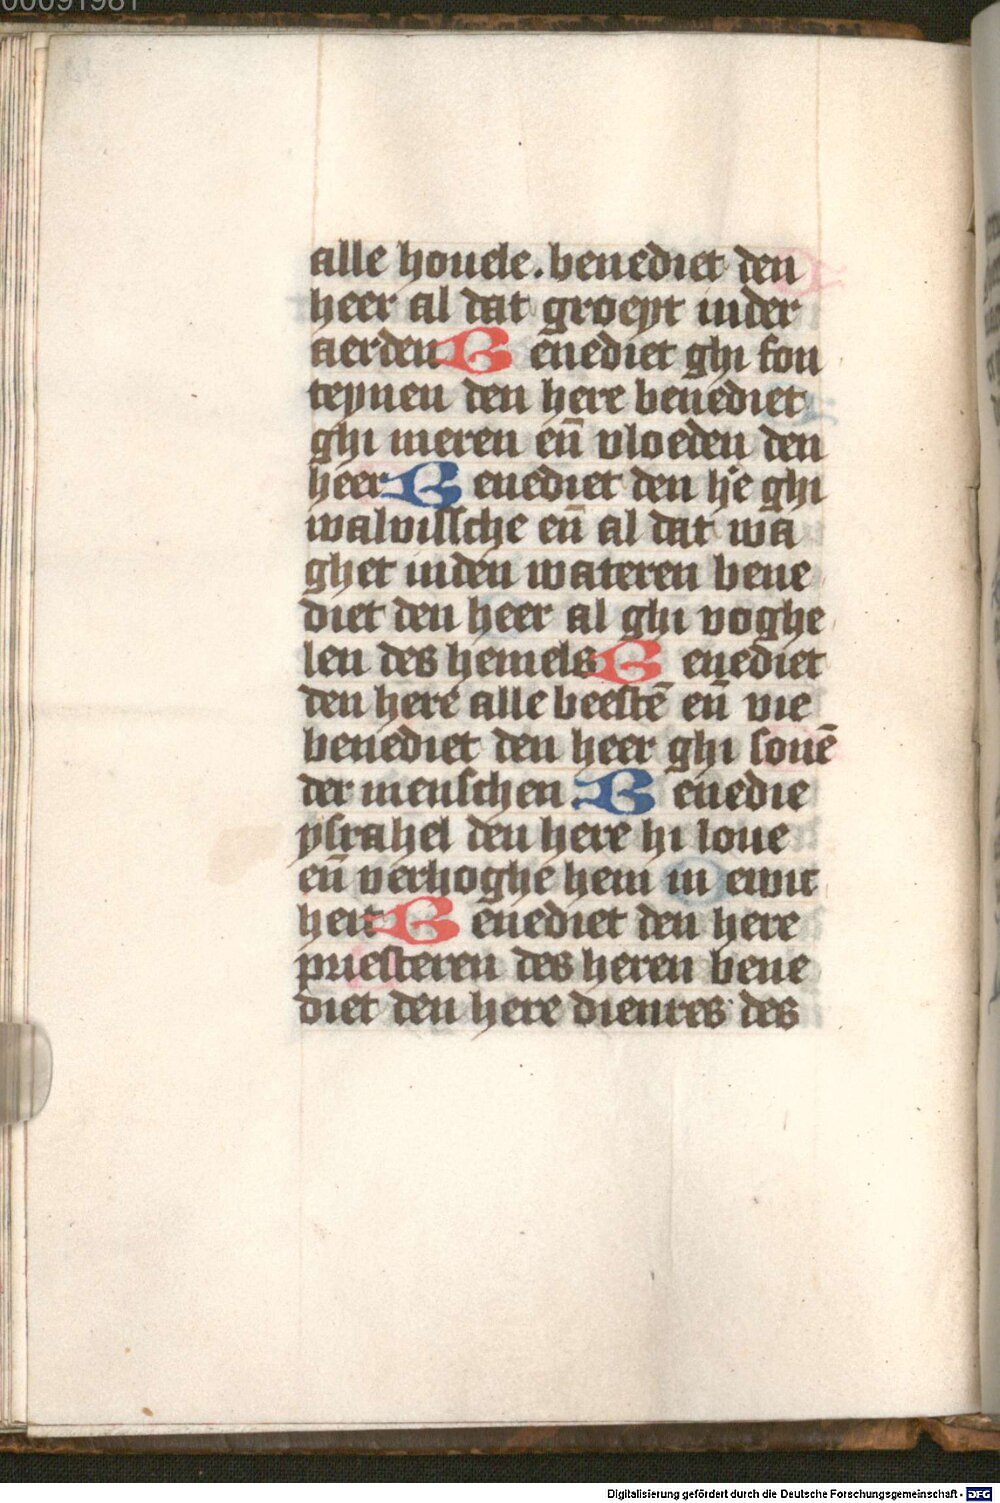 00091981
alle houele. benediet den
heer al dat groeyt inder
aerden Benediet ghi fon
teynen den here benediet
ghi meren en̄ vloeden den
heer Benediet den h'e ghi
walvissche en̄ al dat wa
ghet inden wateren bene
diet den heer al ghi voghe
len des hemels Benediet
den here alle beestē en̄ vie
benediet den heer ghi sonē
der menschen Benedie
ysrahel den here hi loue
en̄ verhoghe hem in ewic
heit Benediet den here
priesteren des heren bene
diet den here dienres des
Digitalisierung gefördert durch die Deutsche Forschungsgemeinschaft - DFG